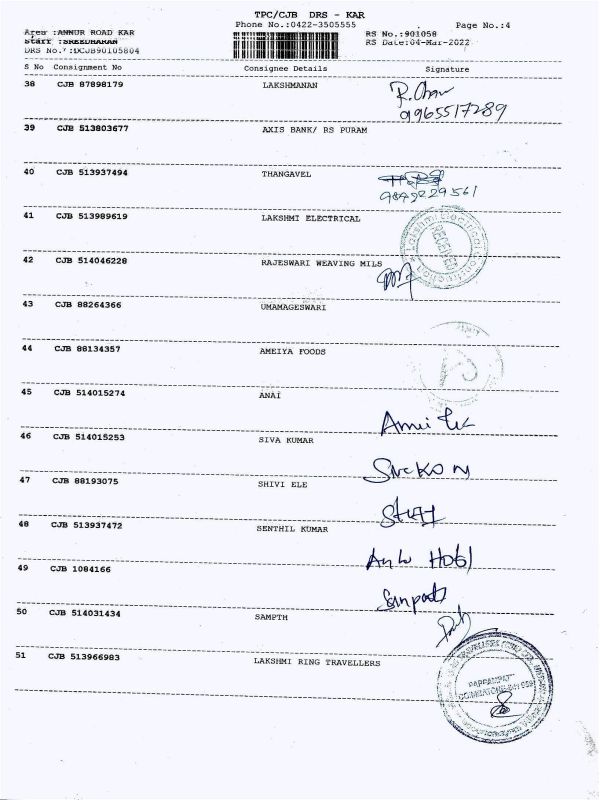 TPC/CJB DRS - KAR
Area :ANNUR ROAD KAR Phone No.:0422-3505555 Page No.:4
Staff :SREEDHARAN RS No.:901058
DRS No.:DCJB90105804 RS Date:04-Mar-2022
S No Consignment No Consignee Details Signature
38 CJB 87898179 LAKSHMANAN
9965517289
39 CJB 513803677 AXIS BANK/ RS PURAM
40 CJB 513937494 THANGAVEL
9842229561
41 CJB 513989619 LAKSHMI ELECTRICAL
RECEIVED
42 CJB 514046228 RAJESWARI WEAVING MILS
43 CJB 88264366 UMAMAGESWARI
44 CJB 88134357 AMEIYA FOODS
45 CJB 514015274 ANAI
46 CJB 514015253 SIVA KUMAR
47 CJB 88193075 SHIVI ELE
48 CJB 513937472 SENTHIL KUMAR
49 CJB 1084166
50 CJB 514031434 SAMPTH
51 CJB 513966983 LAKSHMI RING TRAVELLERS